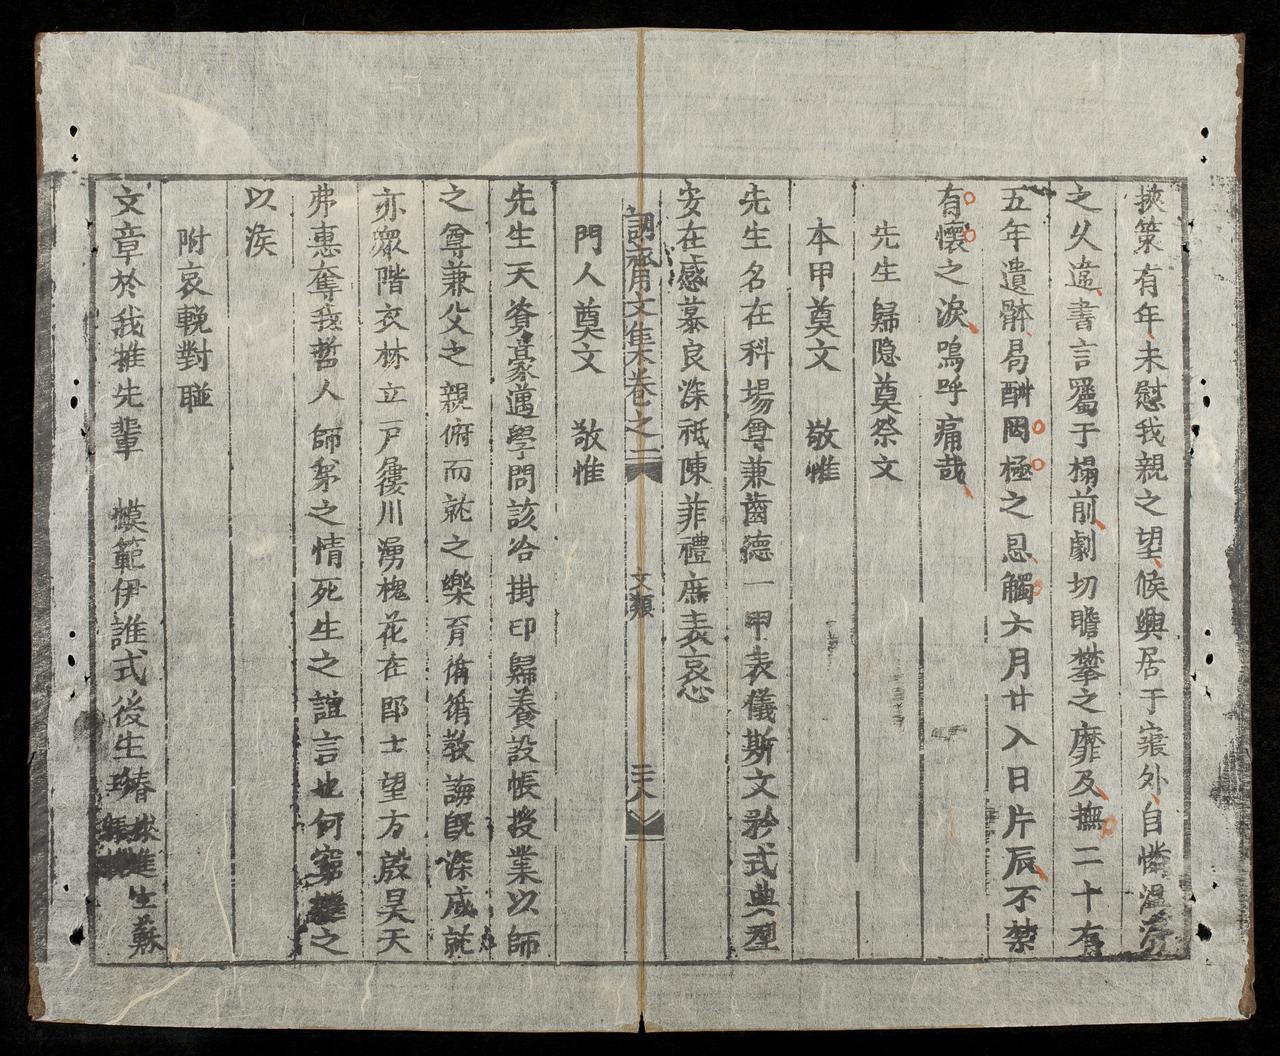 挾策有年未慰我親之望候興居于寢外自憐溫
之久違書言屬于榻前劇切瞻攀之靡及撫二十有
五年遺骸曷酬罔極之恩觸六月廿入日片辰不禁
有懷之淚嗚呼痛哉
先生歸隐奠祭文
本甲奠文 敬惟
先生名在科場尊兼齒德一甲表儀斯文矜式典型
安在感慕良深祗陳菲禮庶表哀心
齋文集卷之二 文類 三八
門人奠文 敬惟
先生天資豪邁學問該洽掛印歸養設帳授業以師
之尊兼父之親俯而就之樂育循循教誨既深咸就
亦眾階衣林立戸屨川湧槐花在郎士望方殷昊天
弗惠奪我哲人師弟之情死生之誼言也何窮之
以矦
附哀輓對聯
文章於我推先輩 模範伊誰式後生 椿 進生蘇